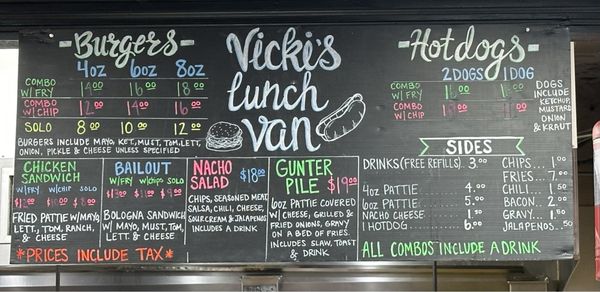 Burgers
4oz 6oz 8oz
COMBO W/ FRY 14.00 16.00 18.00
COMBO W/ CHIP 12.00 14.00 16.00
SOLO 8.00 10.00 12.00
BURGERS INCLUDE MAYO, KET, MUST, TOM, LETT,
ONION, PICKLE & CHEESE UNLESS SPECIFIED
Vicki's
lunch
van
Hotdogs
2DOGS 1DOG
COMBO W/ FRY
COMBO W/ CHIP
DOGS
INCLUDE
KETCHUP,
MUSTARD
ONION
& KRAUT
CHICKEN
SANDWICH
W/FRY W/CHIP SOLO
FRIED PATTIE W/MAYO,
LETT, TOM, RANCH,
& CHEESE
BAILOUT
W/FRY W/CHIPS SOLO
BOLOGNA SANDWICH
W/ MAYO, MUST, TOM,
LETT & CHEESE
NACHO
SALAD $18.00
CHIPS, SEASONED MEAT,
SALSA, CHILI, CHEESE,
SOUR CREAM & JALAPENOS
INCLUDES A DRINK
GUNTER
PILE $19.00
6OZ PATTIE COVERED
W/ CHEESE, GRILLED &
FRIED ONIONS, GRAVY
ON A BED OF FRIES.
INCLUDES SLAW, TOAST
& DRINK
SIDES
DRINKS (FREE REFILLS). 3.00
4OZ PATTIE 4.00
6OZ PATTIE 5.00
NACHO CHEESE 1.00
1 HOTDOG 6.00
CHIPS... 1.00
FRIES... 7.00
CHILI... 1.50
BACON... 2.00
GRAVY... 1.00
JALAPENOS .50
ALL COMBOS INCLUDE A DRINK
*PRICES INCLUDE TAX*